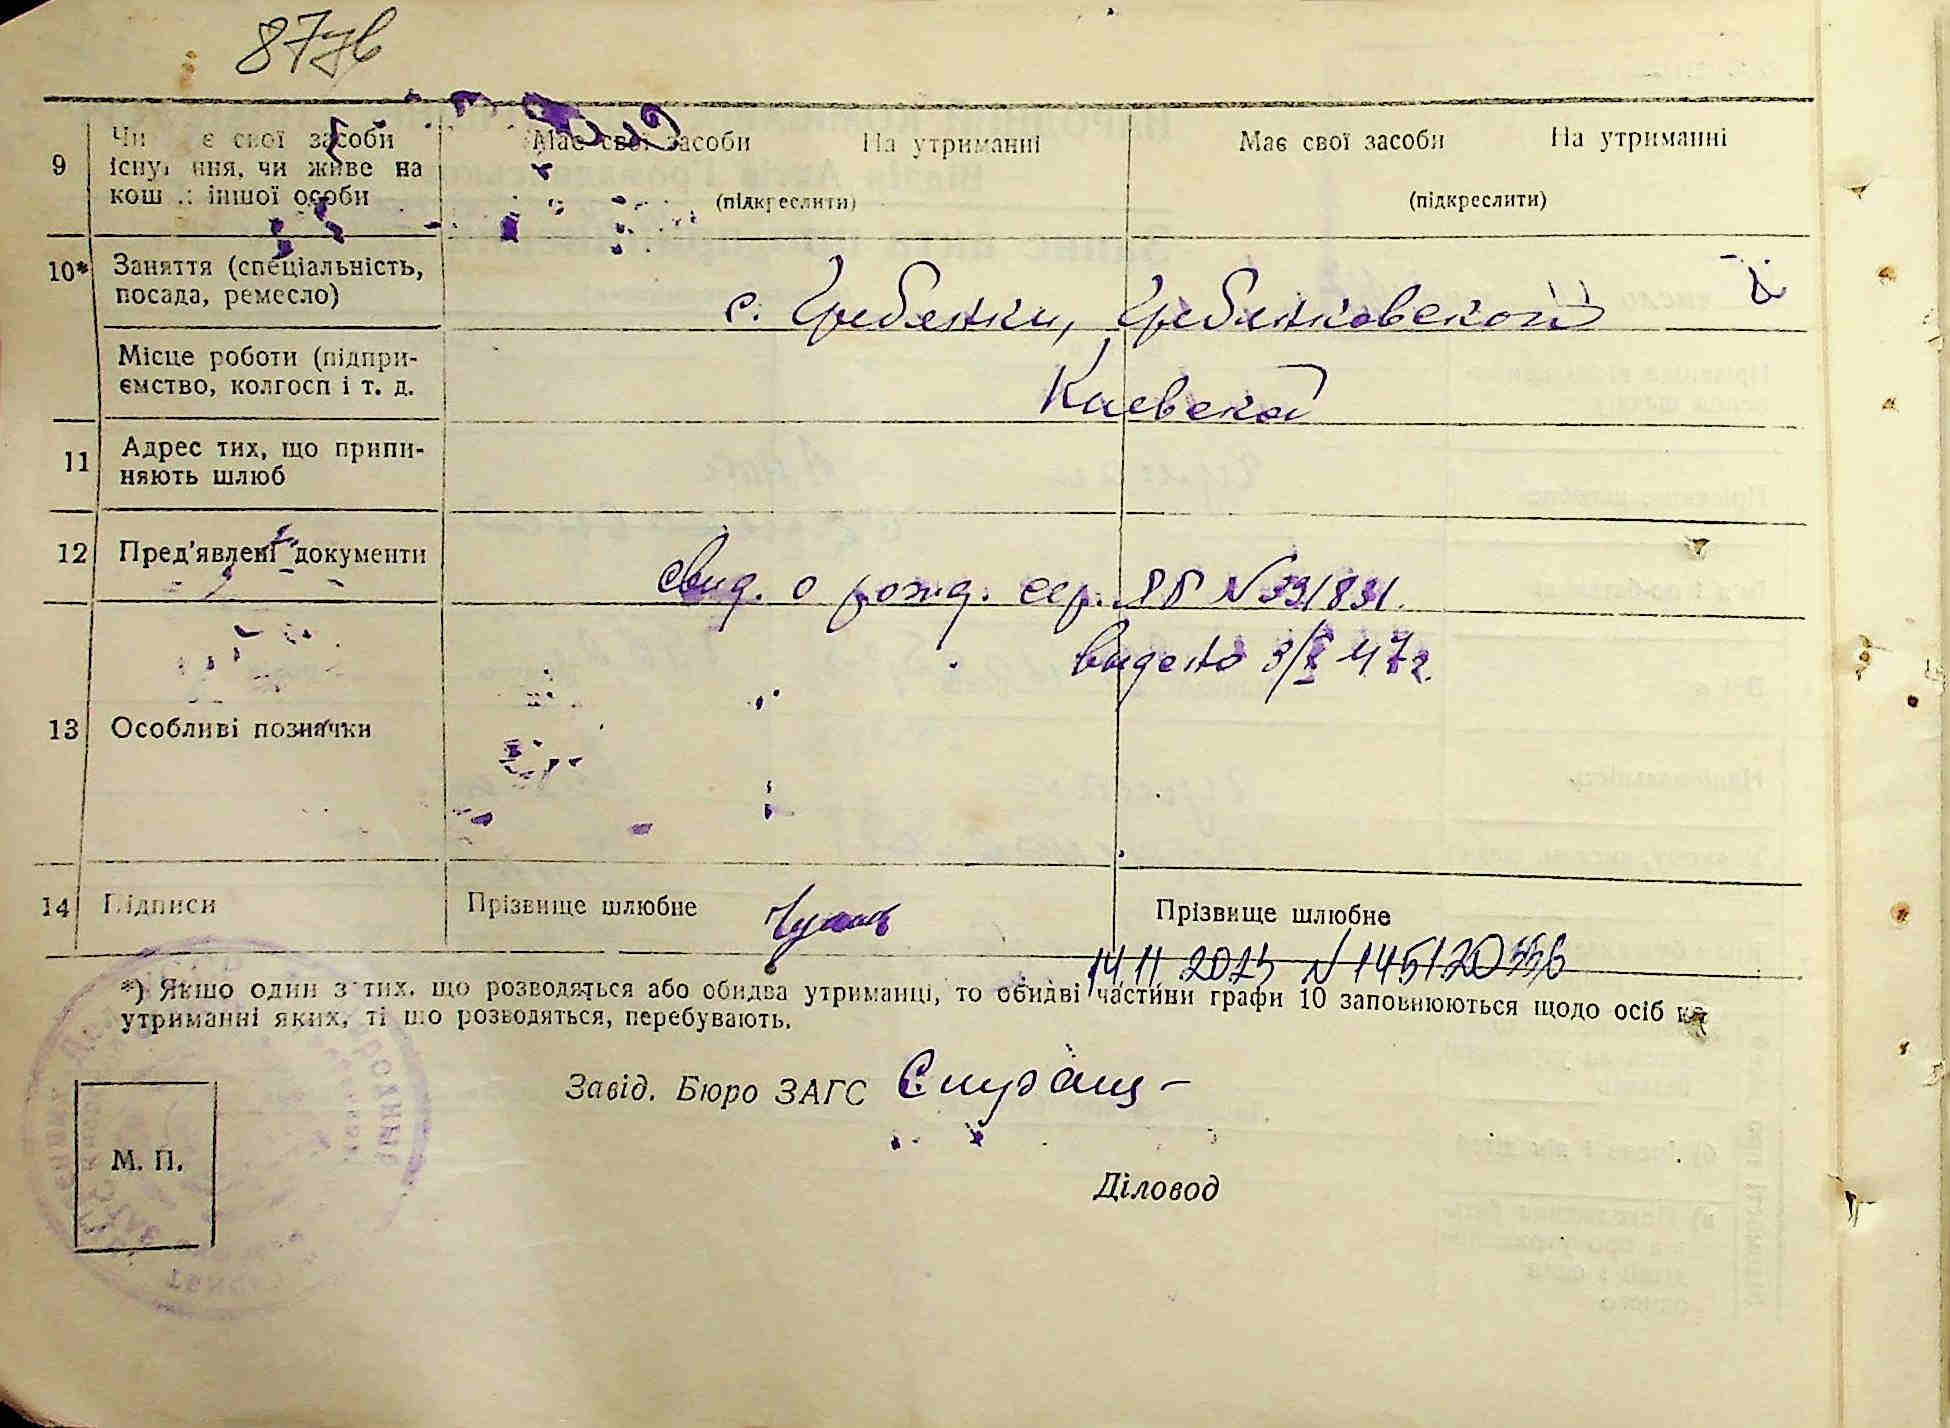 87зв
9
Чи є свої засоби Має свої засоби На утриманні Має свої засоби На утриманні
існування, чи живе на
кош іншої особи (підкреслити) (підкреслити)
10* Заняття (спеціальність,
посада, ремесло) с. Гребенки, Гребенковского
Місце роботи (підпри-
ємство, колгосп і т. д. Киевской
11 Адрес тих, що припи-
няють шлюб
12 Пред'явлені документи свид. о рожд. сер. № 391831.
видано 3/X 47г.
13 Особливі позначки
14 Підписи Прізвище шлюбне Прізвище шлюбне
14 11 2023 N 14512
*) Якщо один з тих. що розводяться або обидва утриманці, то обидві частини графи 10 заповнюються щодо осіб на
утриманні яких, ті що розводяться, перебувають.
Завід. Бюро ЗАГС
М. П.
Діловод